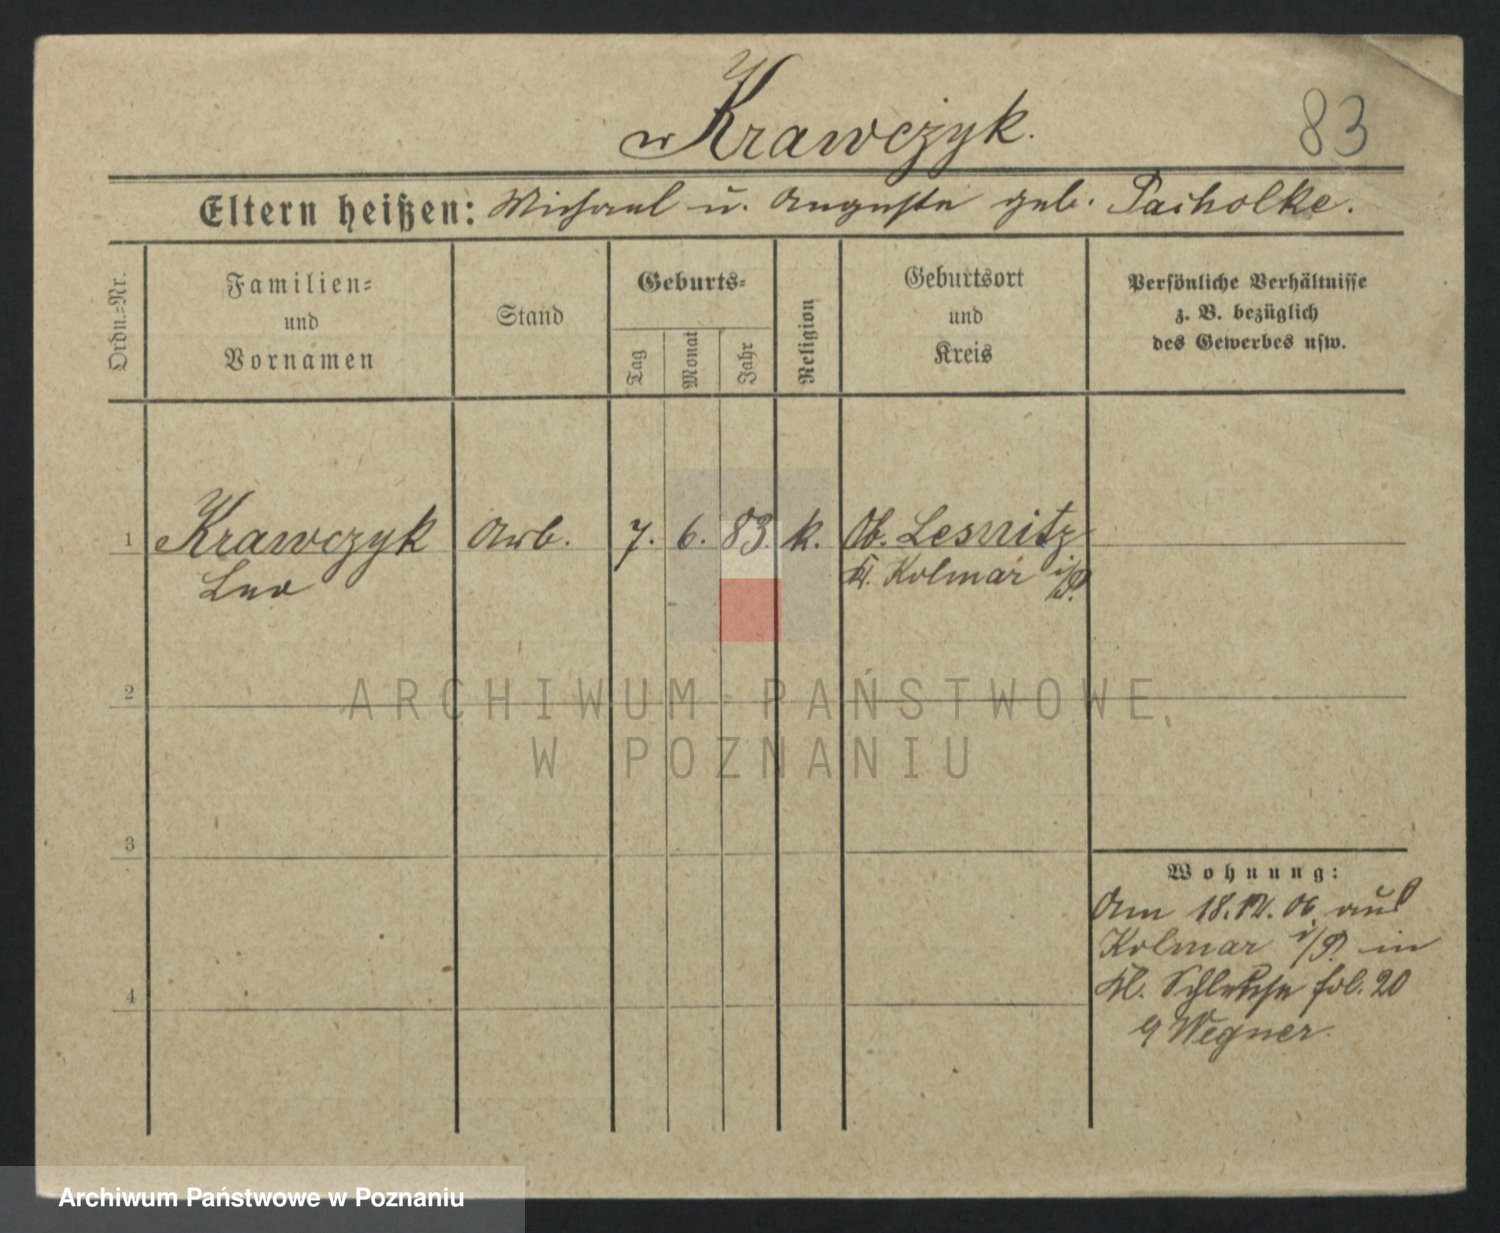 Krawczyk. 83
Eltern heißen: Michael u. Auguste geb. Pacholke.
Ordn.=Nr.
Familien=
und
Vornamen
Stand
Geburts=
Tag
Monat
Jahr
Religion
Geburtsort
und
Kreis
Persönliche Verhältnisse
z. B. bezüglich
des Gewerbes usw.
1 Krawczyk Arb. 7. 6. 83. k. Ob. Lesnitz
Leo Kr. Kolmar i/P.
2
ARCHIWUM PAŃSTWOWE
W POZNANIU
3
Wohnung:
Am 18.12.06. aus
Kolmar i/P. in
Kl. Schleuse fol. 20
Wegner.
4
Archiwum Państwowe w Poznaniu